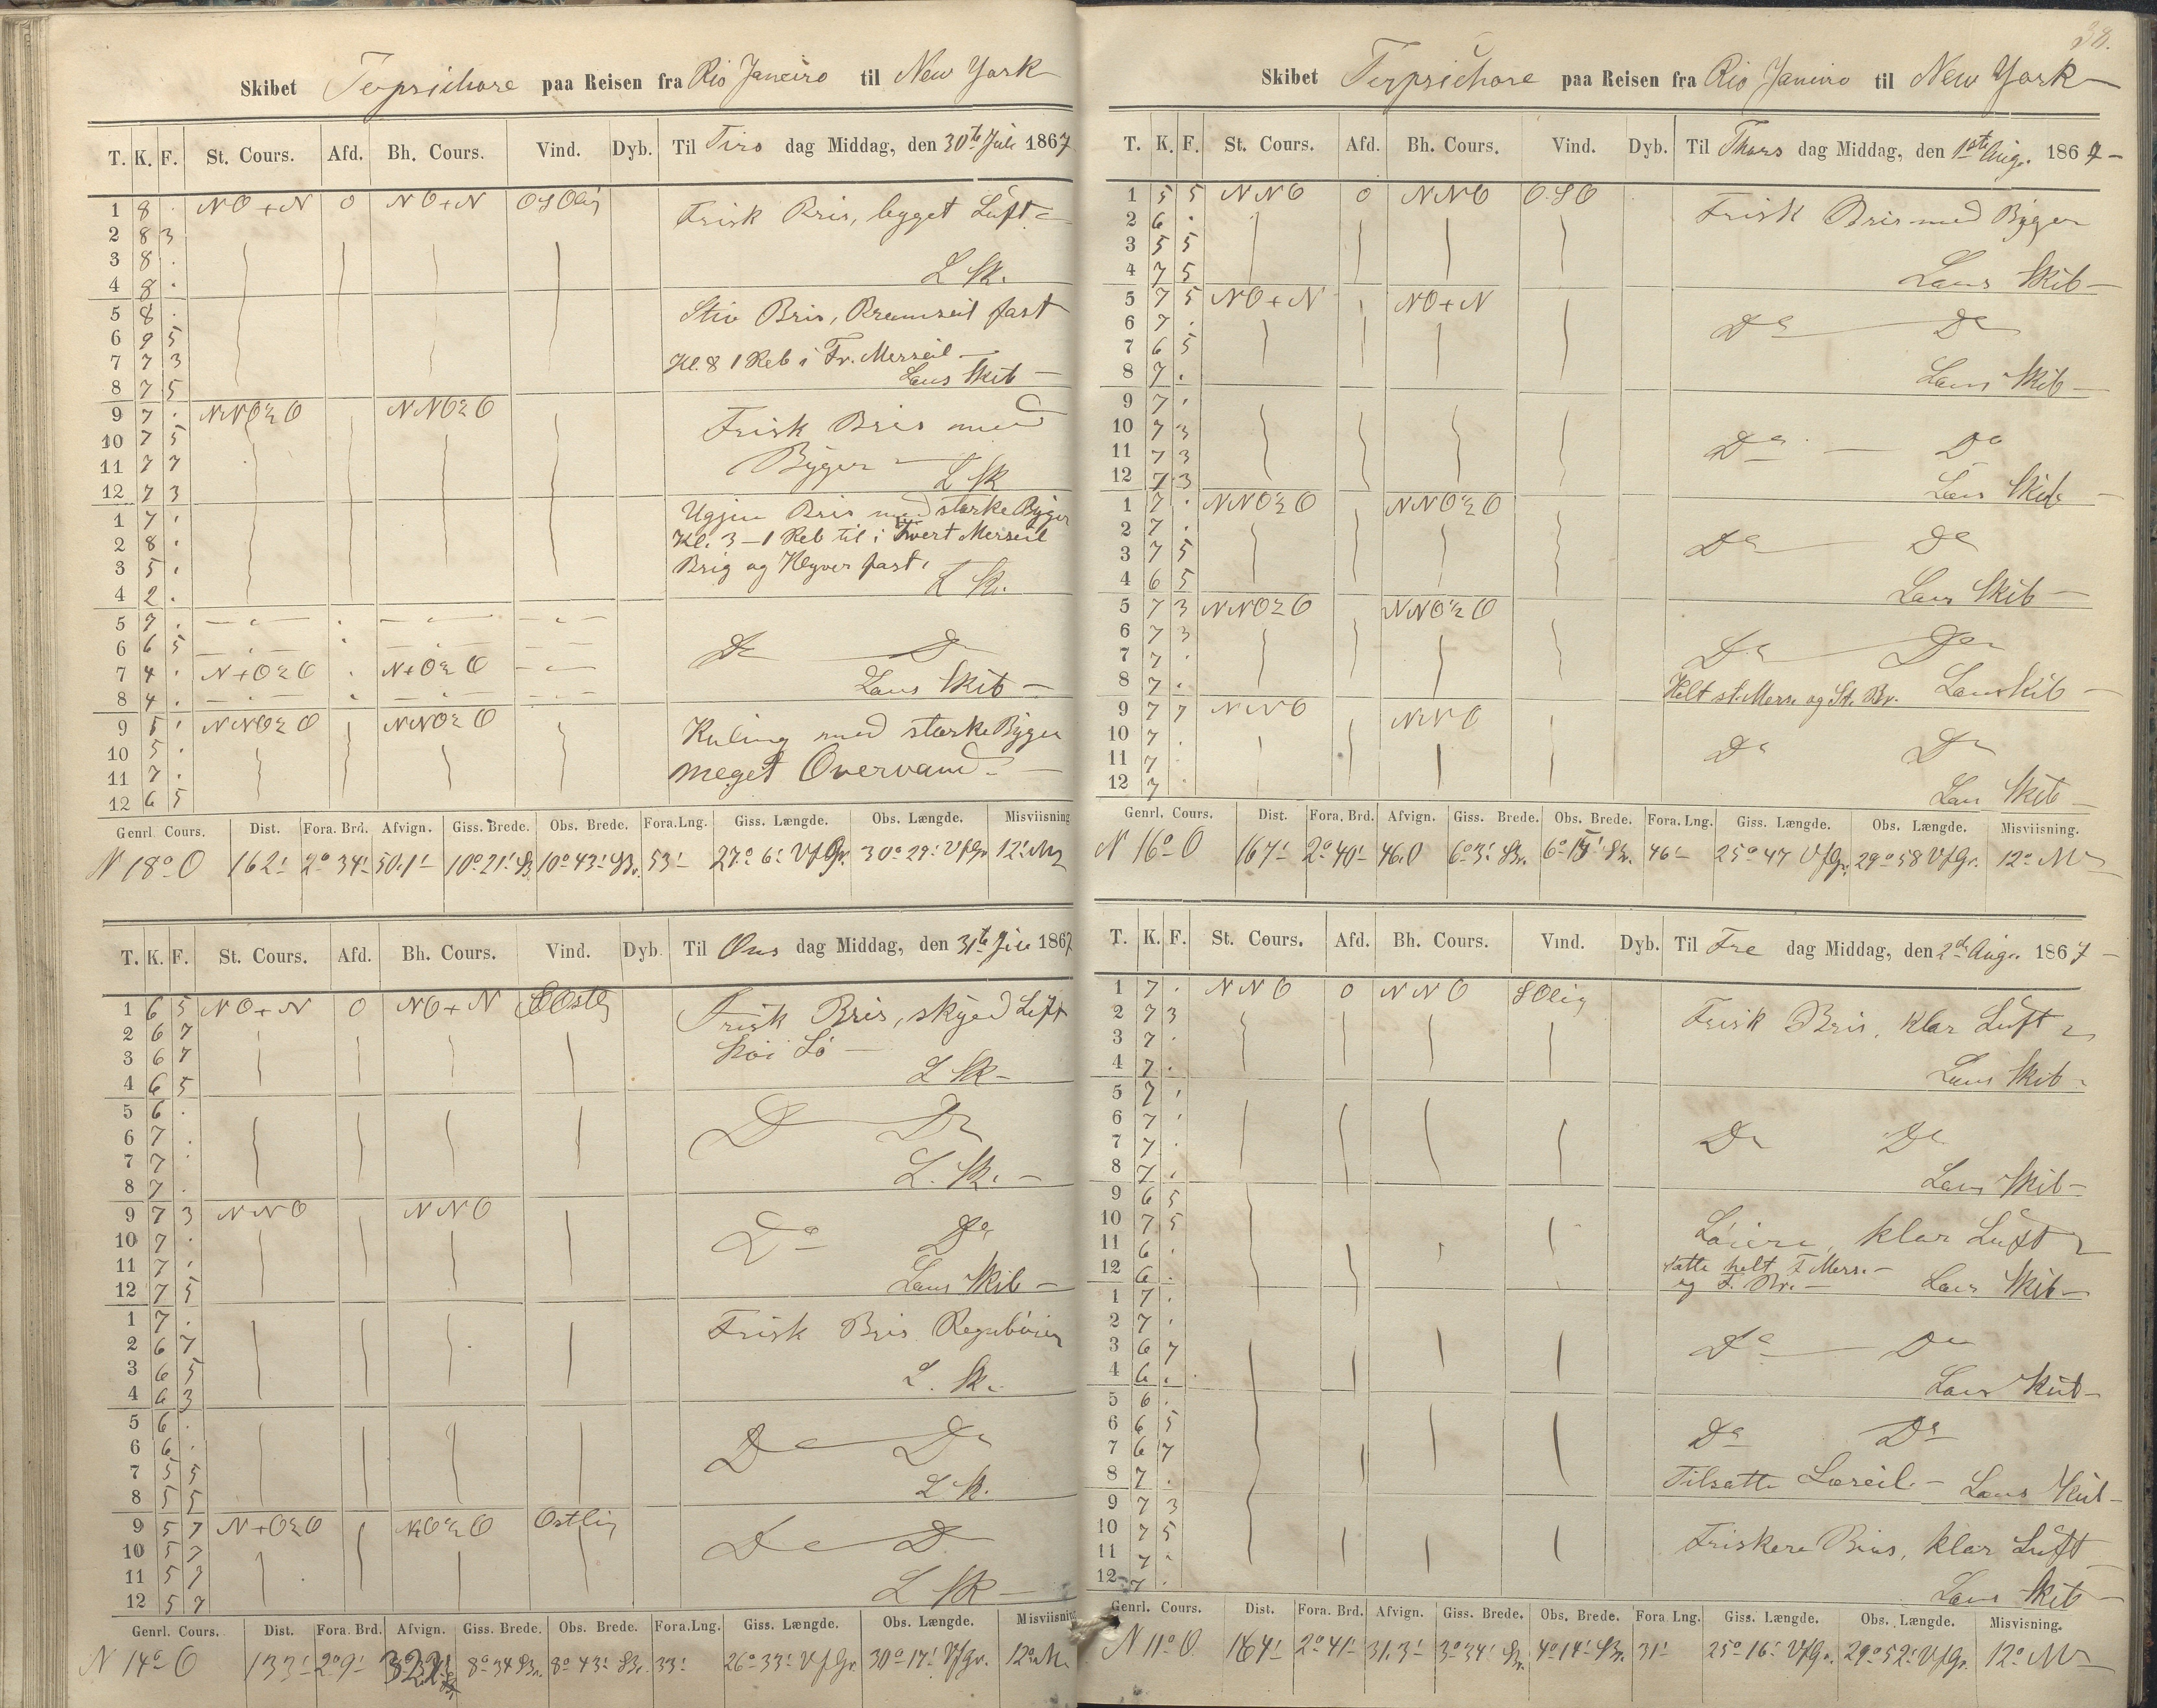 38.
Skibet Terpsichore paa Reisen fra Rio Janeiro til New York
T. K. F. St. Cours. Afd. Bh. Cours. Vind. Dyb. Til Tirs dag Middag, den 30te Juli 1867
1 8 . NO+N 0 NO+N OSOlig Frisk Bris, bygget Luft
2 8 3
3 8 .
4 8 . L Sk.
5 8 . Stiv Bris, Bramseil fast
6 9 5
7 7 3 Kl. 8 1 Reb i Fr. Merseil
8 7 5 Læns Skib
9 7 . NNO½O NNO½O Frisk Bris med
10 7 5
11 7 7 Byger L Sk
12 7 3
1 7 . Ugjen Bris med stærke Byger
2 8 . Kl. 3 - 1 Reb til i hvert Merseil
3 5 . Brig og Klyver fast.
4 2 . L Sk.
5 7 .
6 6 5 Do Do
7 4 . N+O½O . N+O½O
8 4 . Læns Skib
9 5 . NNO½O NNO½O Kuling med stærke Byger
10 5 .
11 7 . meget Overvand.
12 6 5
Genrl. Cours. Dist. Fora. Brd. Afvign. Giss. Brede. Obs. Brede. Fora. Lng. Giss. Længde. Obs. Længde. Misviisning
N 18° O 162' 2° 34' 50.1' 10° 21' SBr. 10° 43' SBr. 53' 27° 6' VfGr. 30° 29' VfGr 12°
T. K. F. St. Cours. Afd. Bh. Cours. Vind. Dyb. Til Ons dag Middag, den 31te Juli 1867
1 6 5 NO+N 0 NO+N Frisk Bris, skyed Luft
2 6 7
3 6 7 høi Sö
4 6 5 L Sk
5 6 .
6 7 . Do Do
7 7 .
8 7 . L. Sk.
9 7 3 NNO NNO
10 7 . Do Do
11 7 .
12 7 5 Læns Skib
1 7 . Frisk Bris Regnböier
2 6 7
3 6 5
4 6 3 L. Sk.
5 6 .
6 6 . Do Do
7 5 5
8 5 5 L Sk.
9 5 7 N+O½O N+O½O Ostlig
10 5 7 Do Do
11 5 7
12 5 7 L Sk
Genrl. Cours. Dist. Fora. Brd. Afvign. Giss. Brede. Obs. Brede. Fora. Lng. Giss. Længde. Obs. Længde. Misviisning
N 14° O 133' 2° 9' 8° 34 SBr. 8° 43' SBr. 33' 26° 33' VfGr 30° 17' VfGr. 12°
Skibet Terpsichore paa Reisen fra Rio Janeiro til New York
T. K. F. St. Cours. Afd. Bh. Cours. Vind. Dyb. Til Thors dag Middag, den 1ste Aug. 1867
1 5 5 NNO 0 NNO O.SO Frisk Bris med Byger
2 6 .
3 5 5
4 7 5 Læns Skib
5 7 5 NO+N NO+N
6 7 . Do Do
7 6 5
8 7 . Læns Skib
9 7 .
10 7 3
11 7 3 Do Do
12 7 3 Læns Skib
1 7 . NNO½O NNO½O
2 7 .
3 7 5 Do Do
4 6 5 Læns Skib
5 7 3 NNO½O NNO½O
6 7 3
7 7 . Do Do
8 7 . Helt st. Mers. og St. Br. Læns Skib
9 7 7 NNO NNO
10 7 . Do Do
11 7 .
12 7 . Læns Skib
Genrl. Cours. Dist. Fora. Brd. Afvign. Giss. Brede. Obs. Brede. Fora. Lng. Giss. Længde. Obs. Længde. Misviisning.
N 16° O 167' 2° 40' 46.0 6° 3' SBr. 6° SBr. 46' 25° 47 VfGr. 29° 58 VfGr. 12°
T. K. F. St. Cours. Afd. Bh. Cours. Vind. Dyb. Til Fre dag Middag, den 2den Aug. 1867
1 7 . NNO 0 NNO SOlig
2 7 3 Frisk Bris, klar Luft
3 7 .
4 7 . Læns Skib
5 7 .
6 7 .
7 7 . Do Do
8 7 . Læns Skib
9 6 5
10 7 5 Löiere, klar Luft
11 6 . satte helt F. Mers.
12 6 . og F. Br. Læns Skib
1 7 .
2 7 .
3 6 7 Do Do
4 6 . Læns Skib
5 6 .
6 6 5 Do Do
7 6 7
8 7 . Tilsatte Læseil. Læns Skib
9 7 3
10 7 5 Friskere Bris, klar Luft
11 7 .
12 7 . Læns Skib
Genrl. Cours. Dist. Fora. Brd. Afvign. Giss. Brede. Obs. Brede. Fora Lng. Giss. Længde. Obs. Længde. Misvisning.
N 11° O. 164' 2° 41' 31.3' 3° 34' SBr. 4° 14' SBr. 31' 25° 16' VfGr. 29° 52' VfGr. 12°